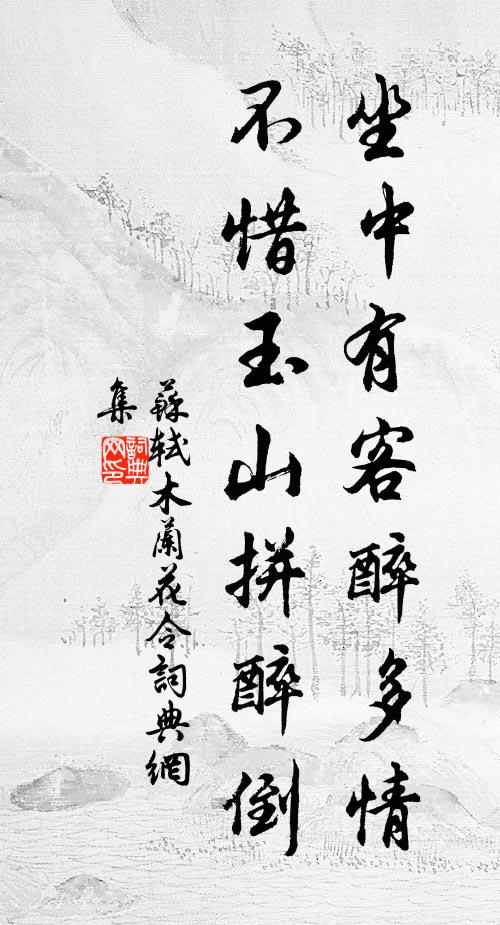 坐中有客醉多情
不惜玉山拼醉倒
蘇軾木蘭花令詞典網
集
詞典
网印